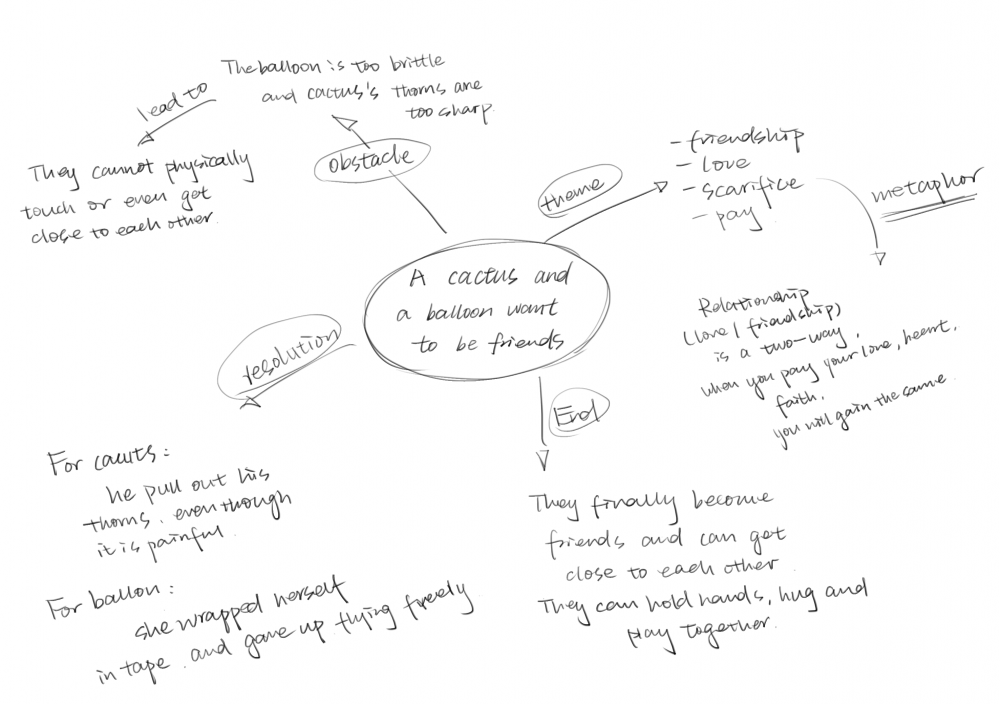 The balloon is too brittle
and cactus's thorns are
too sharp.
lead to
They cannot physically
touch or even get
close to each other.
obstacle
theme
- friendship
- love
- scarifice
- pay
metaphor
Relationship
(love / friendship)
is a two-way,
when you pay your love, heart,
faith,
you will gain the same.
A cactus and
a balloon want
to be friends
resolution
For cauts:
he pull out his
thorns, even though
it is painful.
For ballon:
she wrapped herself
in tape and gave up flying freely
End
They finally become
friends and can get
close to each other
They can hold hands, hug and
play together.